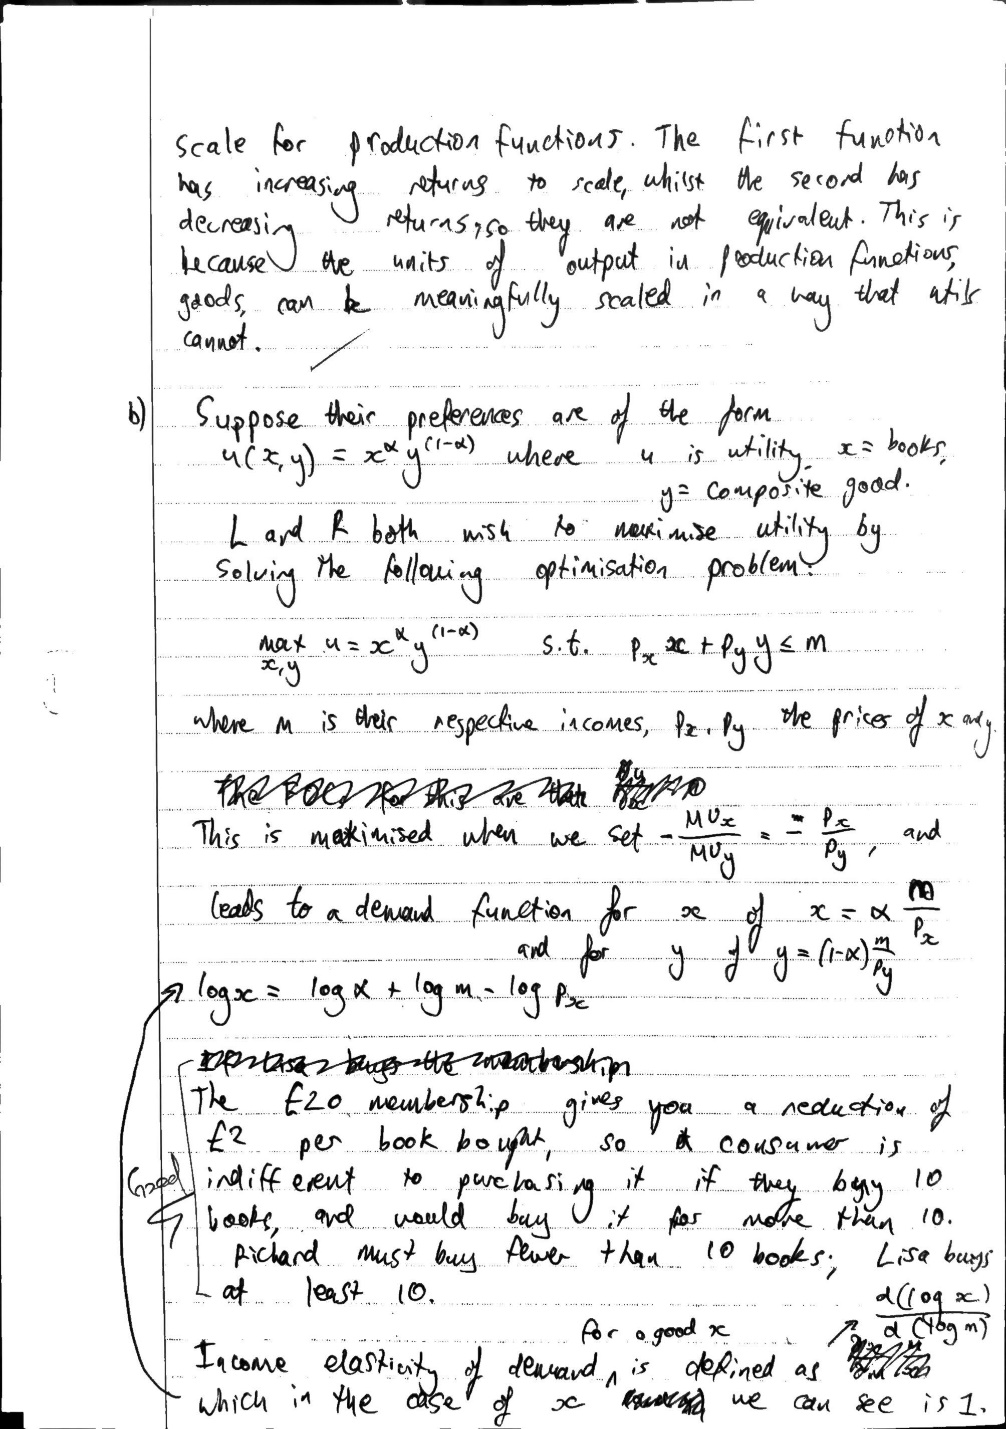 scale for production functions. The first function
has increasing returns to scale, whilst the second has
decreasing returns, so they are not equivalent. This is
because the units of output in production functions,
goods, can be meaningfully scaled in a way that utils
cannot.
b) Suppose their preferences are of the form
u(x,y) = x^α y^(1-α) where u is utility, x = books,
y = composite good.
L and R both wish to maximise utility by
solving the following optimisation problem:
max x,y u = x^α y^(1-α) s.t. Px x + Py y ≤ m
where m is their respective incomes, Px, Py the prices of x and y.
This is maximised when we set - MUx/MUy = - Px/Py, and
leads to a demand function for x of x = α m/Px
and for y of y = (1-α) m/Py
log x = log α + log m - log Px
The £20 membership gives you a reduction of
£2 per book bought, so a consumer is
Good
indifferent to purchasing it if they buy 10
books, and would buy it for more than 10.
Richard must buy fewer than 10 books; Lisa buys
at least 10.
d(log x)/d(log m)
for a good x
Income elasticity of demand ^ is defined as
which in the case of x we can see is 1.